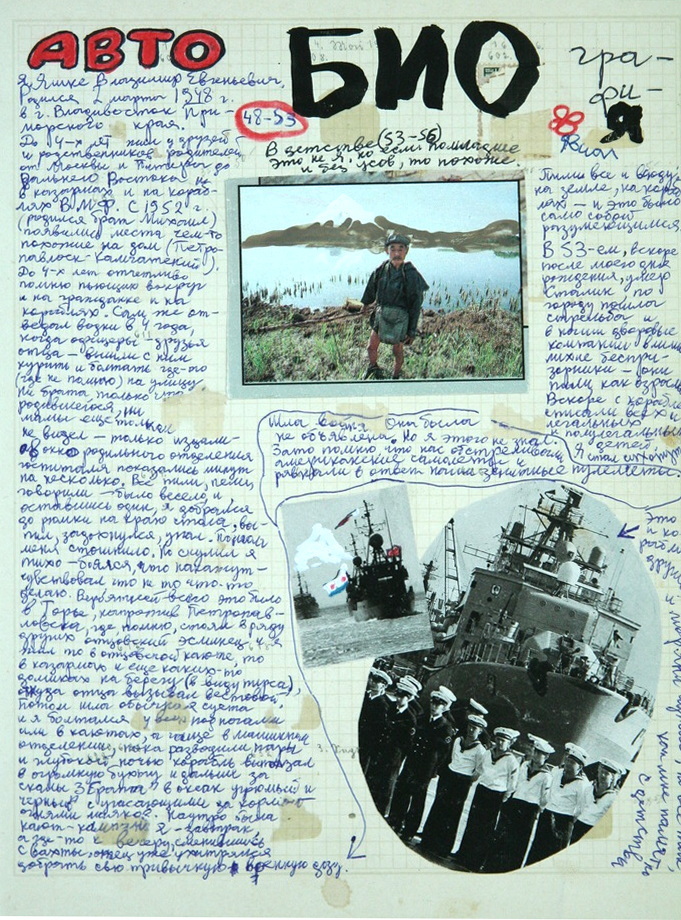 АВТО
БИО
гра-
фи-
Я
Я, Яшке Владимир Евгеньевич,
родился 2 марта 1948 г.
в г. Владивосток При-
морского края.
48-53
До 4-х лет жил у друзей
и родственников родителей
от Москвы и Питера до
Дальнего Востока
в казармах и на кораб-
лях В.М.Ф. С 1952 г.
(родился брат Михаил)
появились места чем-то
похожие на дом (Петро-
павловск-Камчатский).
До 4-х лет отчётливо
помню пьющих вокруг
и на гражданке и на
кораблях. Сам же от-
ведал водки в 4 года,
когда офицеры друзья
отца вышли с ним
курить и болтать где-то
(где не помню) на улицу.
Ни брата только что
родившегося, ни
мамы ещё толком
не видел — только издали-
из окна родильного отделения
госпиталя показались минут
на несколько. Все пили, пели,
говорили — было весело и
оставшись один, я добрался
до рюмки на краю стола, вы-
пил, задохнулся, упал. Потом
меня стошнило. Но скулил я
тихо — боялся, что накажут-
чувствовал что не то что-то
делаю. Вероятней всего это было
в Горы, напротив Петропав-
ловска, где помню, стоял в ряду
других отцовский эсминец, и я
жил то в отцовской каюте, то
в казармах и еще каких-то
домиках на берегу (в виду пирса),
откуда отца вызывал вестовой
потом шла обычная суета
и я болтался у всех под ногами
или в каютах, а чаще в машинном
отделении, пока разводили пары
и жуткой ночью корабль выползал
в огромную бухту и дальше за
скалы "3 Брата" в океан угрюмый и
черный с угасающими за кормой
огнями маяков. Наутро была
кают-компания — завтрак
а где-то к вечеру, сменившись
с вахты, отец уже ухитрялся
добрать свою привычную военную дозу.
В детстве (53-56)
это не я, но если помладше
и без усов, то похоже.
Пили все и всюду
на земле, на кораб-
лях — и это было
само собой
разумеющимся.
В 53-ем, вскоре
после моего дня
рождения, умер
Сталин и по
городу пошла
стрельба и
в наши дворовые
компании влились
лихие беспри-
зорники — они
пили как взрослые
Вскоре с кораблей
списали всех
легальных
и полулегальных
детей.
Шла война. Она была
не объявлена. Но я этого не знал.
Зато помню что нас обстреливали
американские самолёты и
рявкали в ответ наши зенитные пулемёты.
это